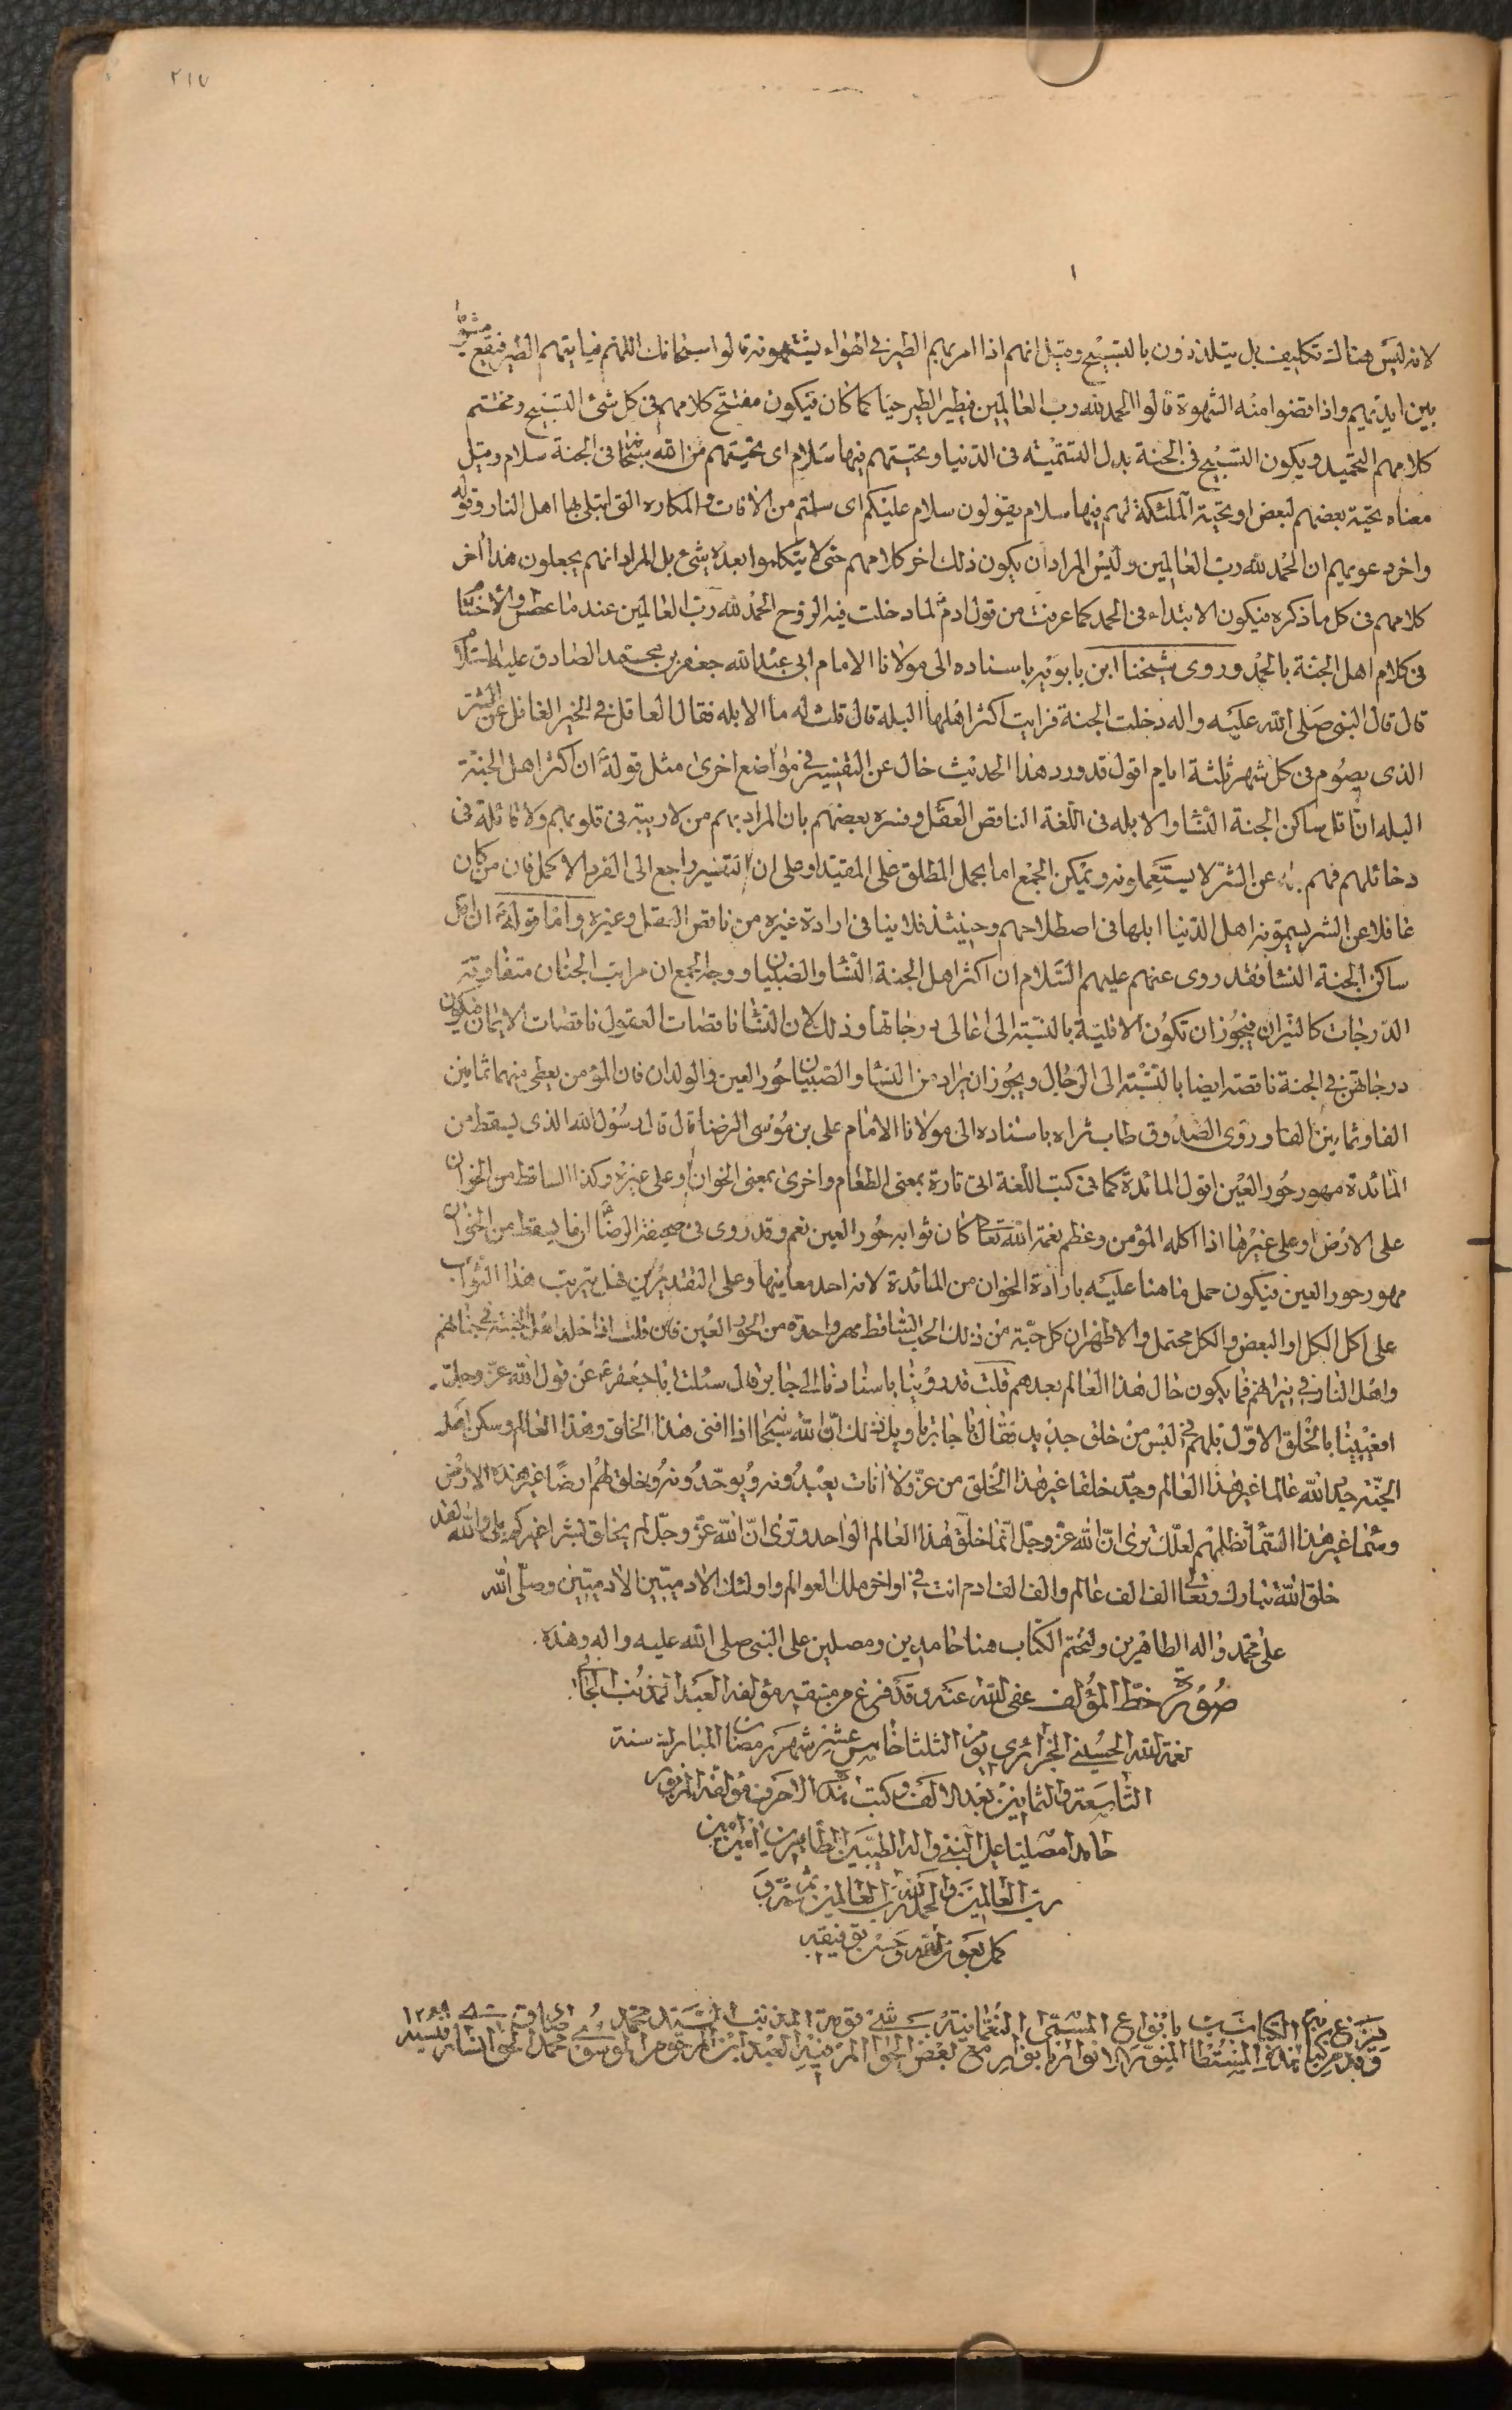 ٢١٧
لانه ليس هناك تكليف بل يتلذذون بالتسبيح وقيل انهم اذا امر بهم الطير فى الهواء يشتهونه قالوا سبحانك اللهم فياتيهم الطير فيقع مشويا
بين ايديهم واذا قضوا منه الشهوة قالوا الحمد لله رب العالمين فيطير الطير حيا كما كان فيكون مفتتح كلامهم فى كل شئ التسبيح ومختتم
كلامهم التحميد ويكون التسبيح فى الجنة بدل التسمية فى الدنيا وتحيتهم فيها سلام اى تحيتهم من الله سبحانه فى الجنة سلام وقيل
معناه تحية بعضهم لبعض او تحية الملئكة لهم فيها سلام يقولون سلام عليكم اى سلمتم من الافات والمكاره التى ابتلى بها اهل النار وقوله
واخر دعويهم ان الحمد لله رب العالمين وليس المراد ان يكون ذلك اخر كلامهم حتى لا يتكلموا بعده بشئ بل المراد انهم يجعلون هذا اخر
كلامهم فى كل ما ذكره فيكون الابتداء فى الحمد كما عرفت من قول ادم لما دخلت فيه الروح الحمد لله رب العالمين عند ما عطس والاختتام
فى كلام اهل الجنة بالحمد وروى شيخنا ابن بابويه باسناده الى مولانا الامام ابى عبد الله جعفر بن محمد الصادق عليه السلام
قال قال النبى صلى الله عليه واله دخلت الجنة فرايت اكثر اهلها البله قال قلت له ما الابله فقال العاقل فى الخير الغافل عن الشر
الذى يصوم فى كل شهر ثلثة ايام اقول قد ورد هذا الحديث خال عن التفسير فى مواضع اخرى مثل قوله ان اكثر اهل الجنة
البله ان اقل ساكن الجنة النسا والابله فى اللغة الناقص العقل وفسره بعضهم بان المراد بهم من لا ريبة فى قلوبهم ولا غائلة فى
دخائلهم فهم بله عن الشر لا يستعملونه ويمكن الجمع اما بحمل المطلق على المقيد او على ان التفسير راجع الى الفرد الاكمل فان من كان
غافلا عن الشر يسمونه اهل الدنيا ابلها فى اصطلاحهم وحينئذ فلا ينافى ارادة غيره من ناقص العقل وغيره واما قوله ان اقل
ساكن الجنة النسا فقد روى عنهم عليهم السلام ان اكثر اهل الجنة النسا والصبيان ووجه الجمع ان مراتب الجنان متفاوتة
الدرجات كالنيران فيجوز ان تكون الاقلية بالنسبة الى اعالى درجاتها وذلك لان النسا ناقصات العقول ناقصات الايمان فيكون
درجاتهن فى الجنة ناقصة ايضا بالنسبة الى الرجال ويجوز ان يراد من النسا والصبيان حور العين والولدان فان المؤمن يعطى منهما ثمانين
الفا وثمانين الفا وروى الصدوق طاب ثراه باسناده الى مولانا الامام على بن موسى الرضا قال قال رسول الله الذى يسقط من
المائدة مهور حور العين اقول المائدة كما فى كتب اللغة اتى تارة بمعنى الطعام واخرى بمعنى الخوان او على غيره وكذا الساقط من الخوان
على الارض او على غيرها اذا اكله المؤمن وعظم نعمة الله تعالى كان ثوابه حور العين نعم وقد روى فى صحيفة الرضا ان ما يسقط من الخوان
مهور حور العين فيكون حمل ما هنا عليه بارادة الخوان من المائدة لانه احد معانيها وعلى التقديرين فهل يترتب هذا الثواب
على اكل الكل او البعض والكل محتمل والاظهر ان كل حبة من ذلك الحب الساقط مهر واحدة من الحور العين فان قلت اذا دخل اهل الجنة فى جنانهم
واهل النار فى نيرانهم فما يكون حال هذا العالم بعدهم قلت قد روينا باسنادنا الى جابر قال سئلت ابا جعفر عن قول الله عز وجل
افعيينا بالخلق الاول بل هم فى لبس من خلق جديد فقال يا جابر تاويل ذلك ان الله سبحانه اذا افنى هذا الخلق وهذا العالم وسكن اهل
الجنة جدد الله عالما غير هذا العالم وجدد خلقا غير هذا الخلق من غير ولا اناث يعبدونه ويوحدونه ويخلق لهم ارضا غير هذه الارض
وسما غير هذا السما تظلهم لعلك ترى ان الله عز وجل انما خلق هذا العالم الواحد وترى ان الله عز وجل لم يخلق بشرا غيركم بلى والله لقد
خلق الله تبارك وتعالى الف الف عالم والف الف ادم انت فى اواخر تلك العوالم واولئك الادميين الادميين وصلى الله
على محمد واله الطاهرين ولنختم الكتاب هنا حامدين ومصلين على النبى صلى الله عليه واله وهذه
صورة خط المؤلف عفى الله عنه وقد فرغ من تنميقه مؤلفه العبد المذنب الجانى
نعمة الله الحسينى الجزائرى يوم الثلثا خامس عشر شهر رمضان المبارك سنة
التاسعة والثمانين بعد الالف وكتب هذه الاحرف مؤلفه المزبور
حامدا مصليا على النبى واله الطيبين الطاهرين امين امين
رب العالمين والحمد لله رب العالمين تمت
كمل بعون الله وحسن توفيقه